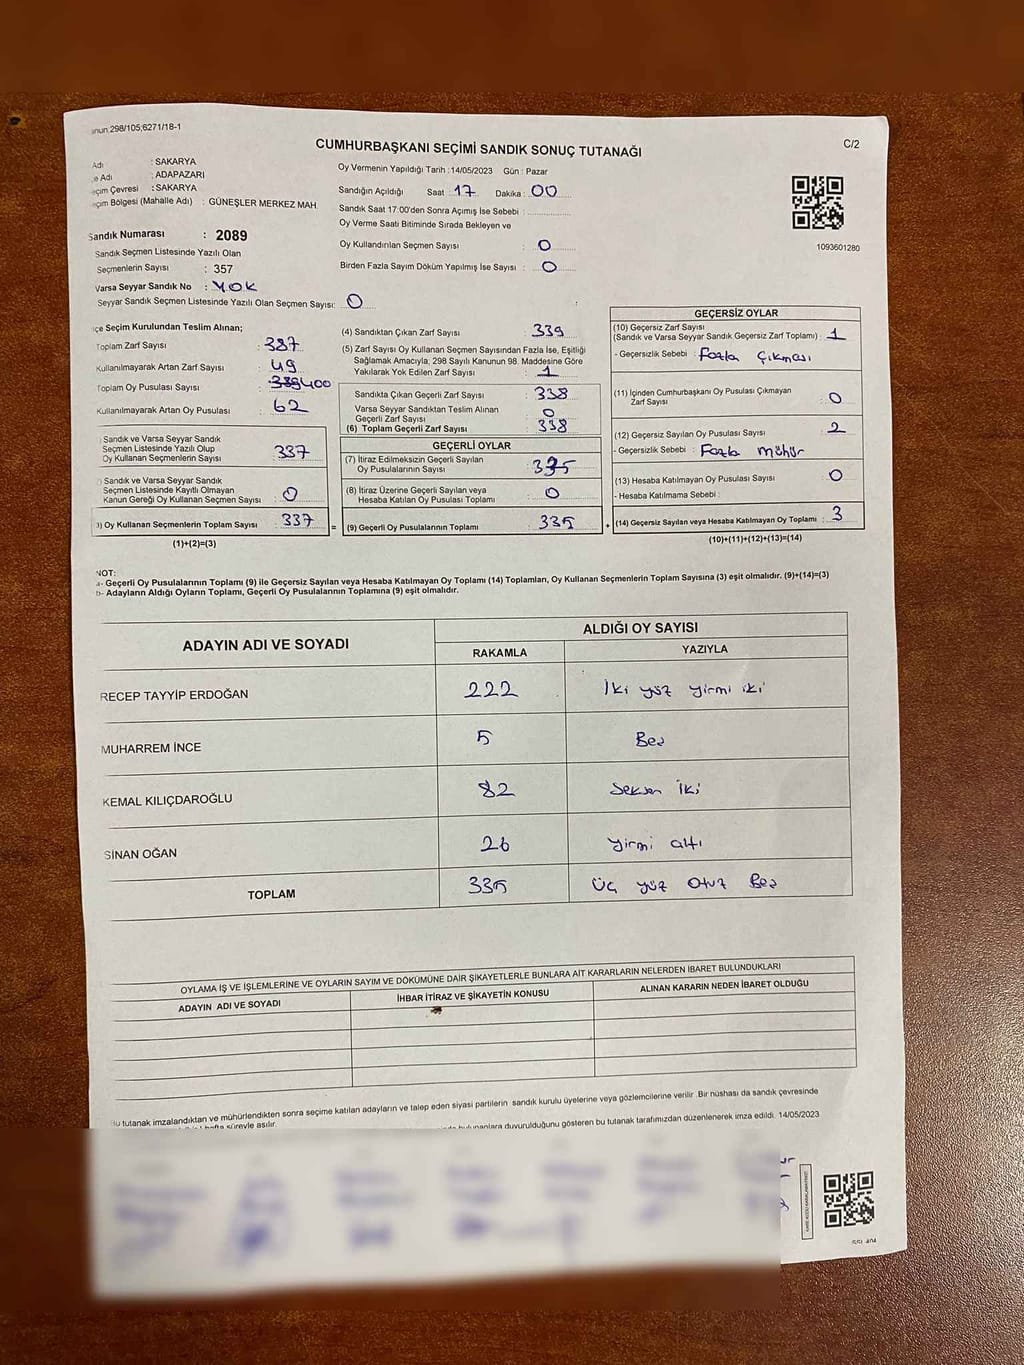 298/105;6271/18-1
CUMHURBAŞKANI SEÇİMİ SANDIK SONUÇ TUTANAĞI
C/2
Adı : SAKARYA
Adı : ADAPAZARI
Çevresi : SAKARYA
Bölgesi (Mahalle Adı) : GÜNEŞLER MERKEZ MAH.
Sandık Numarası : 2089
Sandık Seçmen Listesinde Yazılı Olan
Seçmenlerin Sayısı : 357
Varsa Seyyar Sandık No : YOK
Seyyar Sandık Seçmen Listesinde Yazılı Olan Seçmen Sayısı: 0
Oy Vermenin Yapıldığı Tarih : 14/05/2023 Gün : Pazar
Sandığın Açıldığı Saat 17 Dakika : 00
Sandık Saat 17:00'den Sonra Açımış İse Sebebi :
Oy Verme Saati Bitiminde Sırada Bekleyen ve
Oy Kullandırılan Seçmen Sayısı : 0
Birden Fazla Sayım Döküm Yapılmış İse Sayısı : 0
1093601280
Seçim Kurulundan Teslim Alınan;
Toplam Zarf Sayısı : 387
Kullanılmayarak Artan Zarf Sayısı : 49
Toplam Oy Pusulası Sayısı : 400
Kullanılmayarak Artan Oy Pusulası : 62
) Sandık ve Varsa Seyyar Sandık
Seçmen Listesinde Yazılı Olup
Oy Kullanan Seçmenlerin Sayısı : 337
) Sandık ve Varsa Seyyar Sandık
Seçmen Listesinde Kayıtlı Olmayan
Kanun Gereği Oy Kullanan Seçmen Sayısı : 0
3) Oy Kullanan Seçmenlerin Toplam Sayısı : 337
(1)+(2)=(3)
(4) Sandıktan Çıkan Zarf Sayısı : 339
(5) Zarf Sayısı Oy Kullanan Seçmen Sayısından Fazla İse, Eşitliği
Sağlamak Amacıyla, 298 Sayılı Kanunun 98. Maddesine Göre
Yakılarak Yok Edilen Zarf Sayısı : 1
Sandıkta Çıkan Geçerli Zarf Sayısı : 338
Varsa Seyyar Sandıktan Teslim Alınan
Geçerli Zarf Sayısı : 0
(6) Toplam Geçerli Zarf Sayısı : 338
GEÇERLİ OYLAR
(7) İtiraz Edilmeksizin Geçerli Sayılan
Oy Pusulalarının Sayısı : 335
(8) İtiraz Üzerine Geçerli Sayılan veya
Hesaba Katılan Oy Pusulası Toplamı : 0
= (9) Geçerli Oy Pusulalarının Toplamı : 335
GEÇERSİZ OYLAR
(10) Geçersiz Zarf Sayısı
(Sandık ve Varsa Seyyar Sandık Geçersiz Zarf Toplamı) : 1
- Geçersizlik Sebebi : Fazla Çıkması
(11) İçinden Cumhurbaşkanı Oy Pusulası Çıkmayan
Zarf Sayısı : 0
(12) Geçersiz Sayılan Oy Pusulası Sayısı : 2
- Geçersizlik Sebebi : Fazla mühür
(13) Hesaba Katılmayan Oy Pusulası Sayısı : 0
- Hesaba Katılmama Sebebi :
+ (14) Geçersiz Sayılan veya Hesaba Katılmayan Oy Toplamı : 3
(10)+(11)+(12)+(13)=(14)
NOT:
a- Geçerli Oy Pusulalarının Toplamı (9) ile Geçersiz Sayılan veya Hesaba Katılmayan Oy Toplamı (14) Toplamları, Oy Kullanan Seçmenlerin Toplam Sayısına (3) eşit olmalıdır. (9)+(14)=(3)
b- Adayların Aldığı Oyların Toplamı, Geçerli Oy Pusulalarının Toplamına (9) eşit olmalıdır.
ADAYIN ADI VE SOYADI
ALDIĞI OY SAYISI
RAKAMLA YAZIYLA
RECEP TAYYİP ERDOĞAN 222 İki yüz yirmi iki
MUHARREM İNCE 5 Beş
KEMAL KILIÇDAROĞLU 82 Seksen İki
SİNAN OĞAN 26 yirmi altı
TOPLAM 335 Üç yüz Otuz Beş
OYLAMA İŞ VE İŞLEMLERİNE VE OYLARIN SAYIM VE DÖKÜMÜNE DAİR ŞİKAYETLERLE BUNLARA AİT KARARLARIN NELERDEN İBARET BULUNDUKLARI
ADAYIN ADI VE SOYADI İHBAR İTİRAZ VE ŞİKAYETİN KONUSU ALINAN KARARIN NEDEN İBARET OLDUĞU
Bu tutanak imzalandıktan ve mühürlendikten sonra seçime katılan adayların ve talep eden siyasi partilerin sandık kurulu üyelerine veya gözlemcilerine verilir. Bir nüshası da sandık çevresinde
hafta süreyle asılır.
duyurulduğunu gösteren bu tutanak tarafımızdan düzenlenerek imza edildi. 14/05/2023